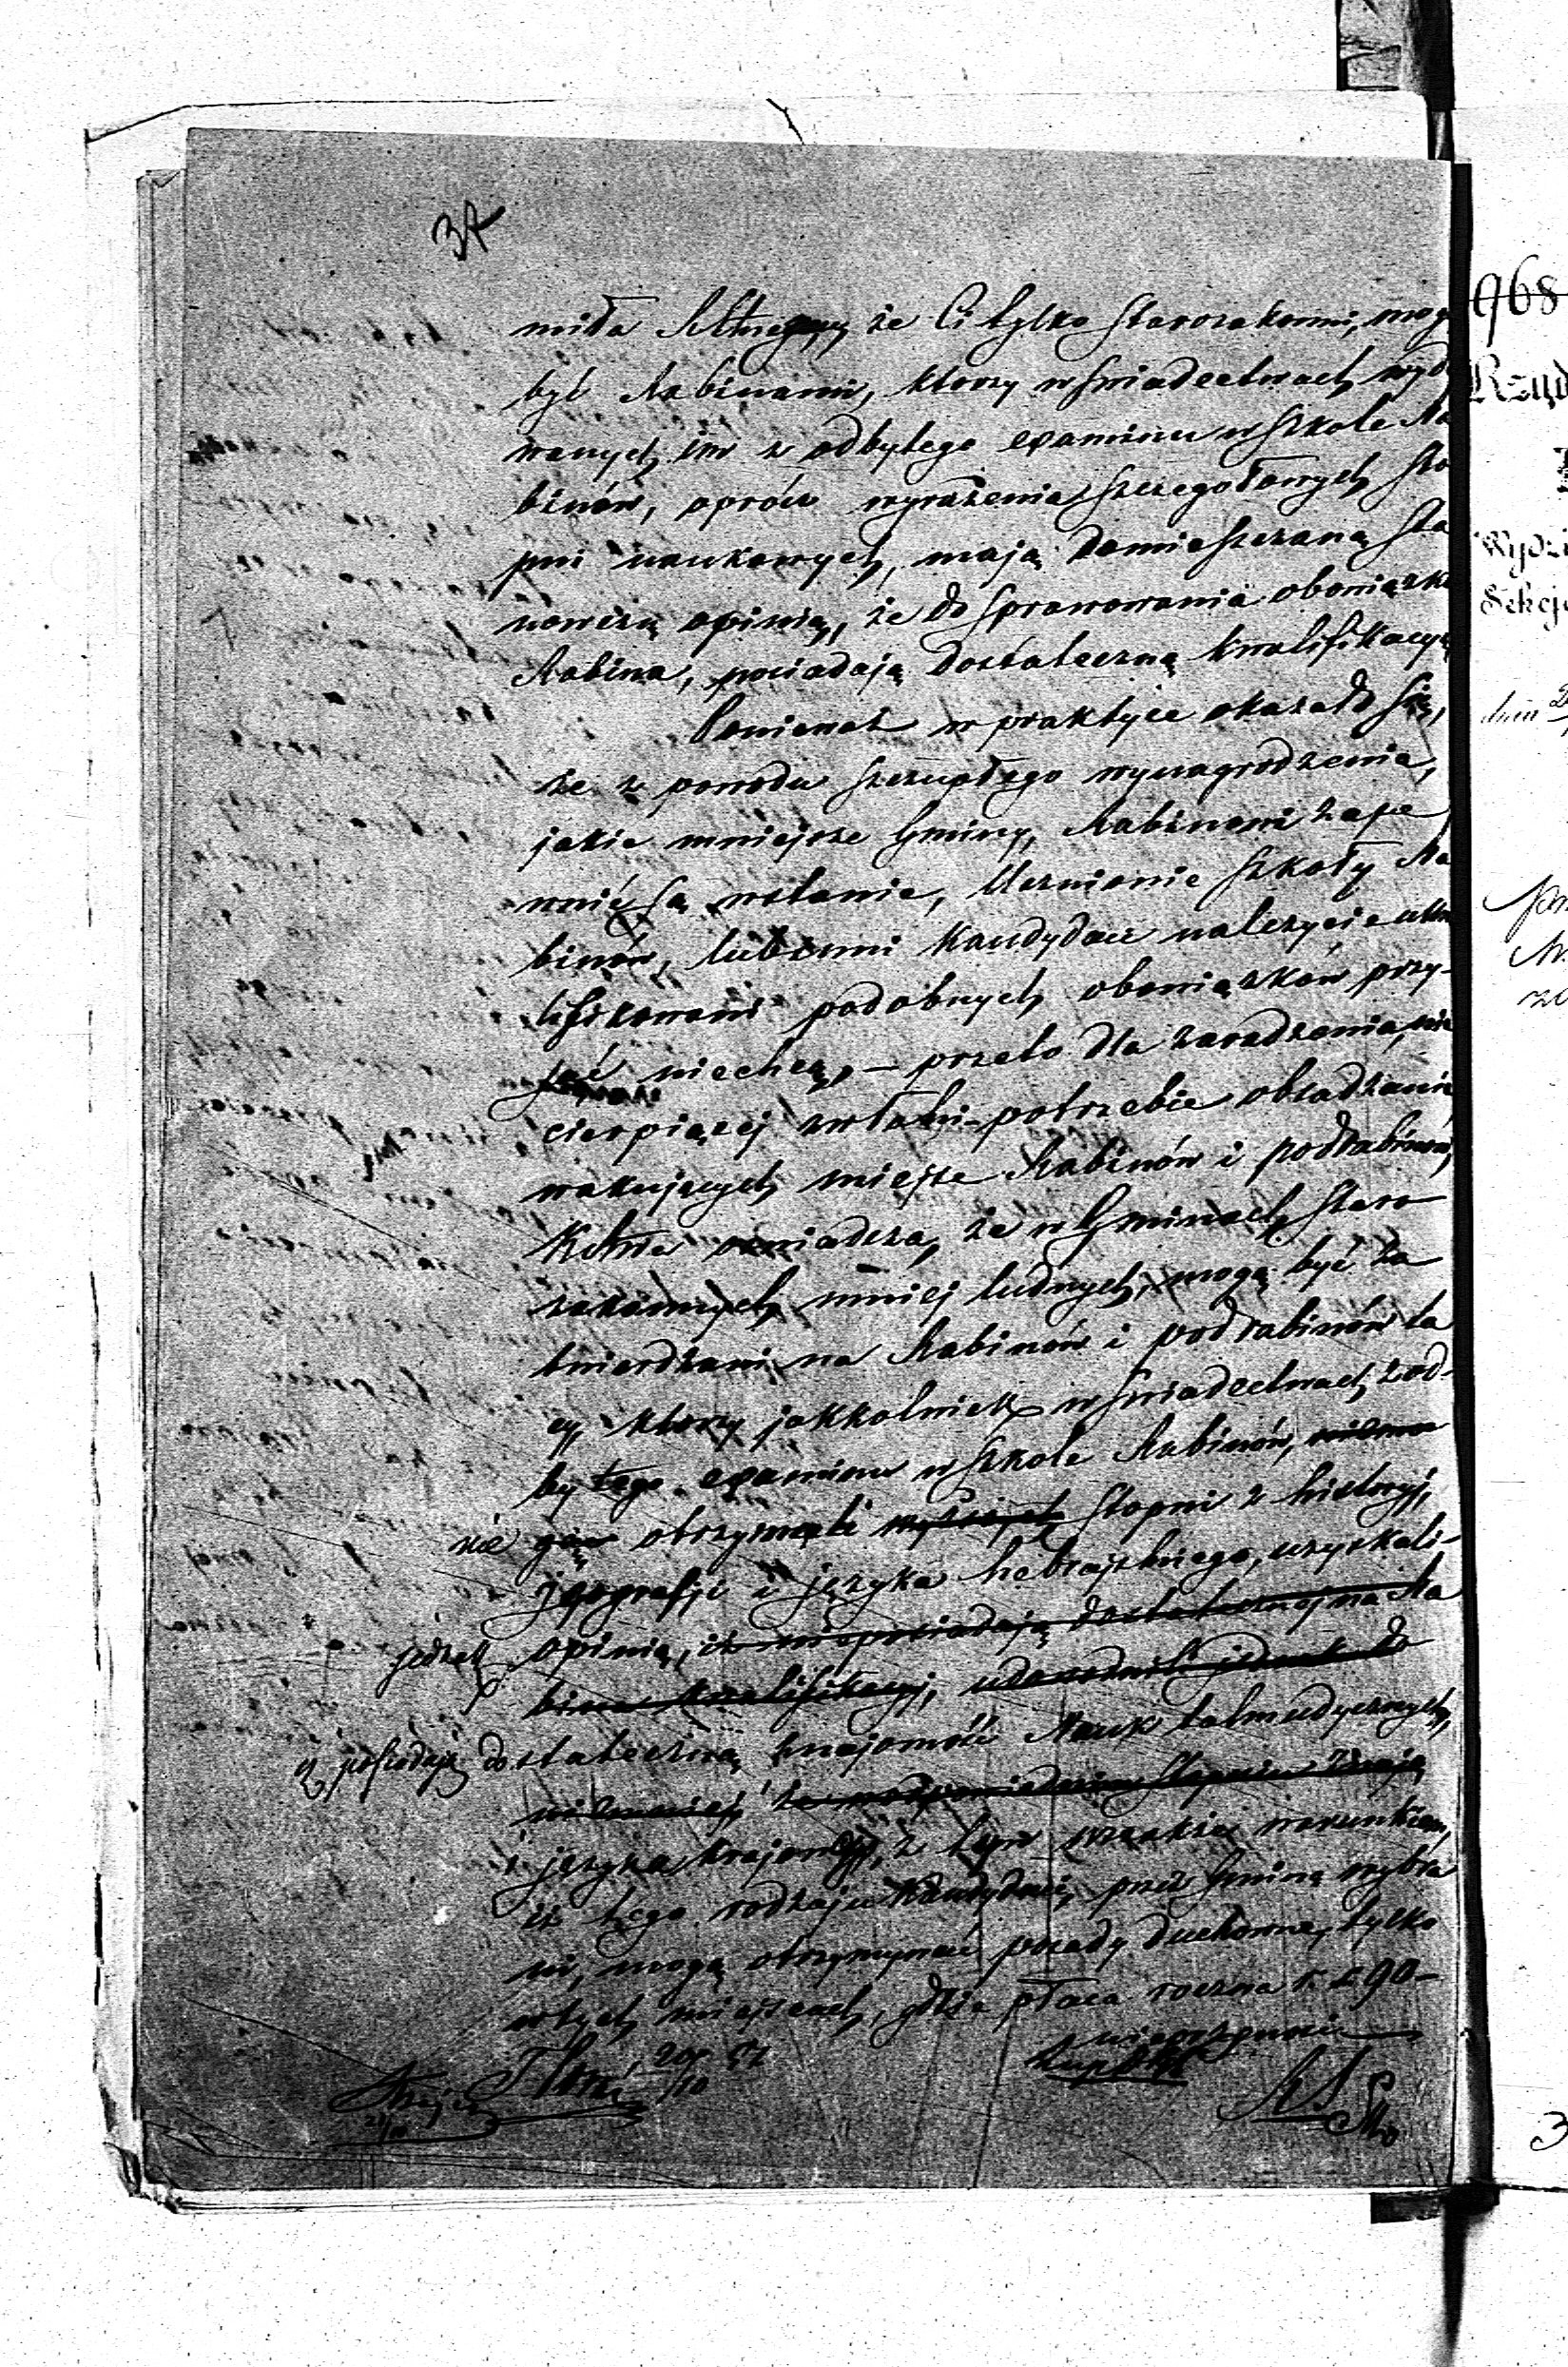 37
miła że Ci tylko Starozakonni, mog
być Rabinami, którzy w świadectwach wyd
wanych im z odbytego examinu w Szkole Ra
binów, oprócz wyrażenia szczegółowych sto
pni naukowych, mają zamieszczoną sta
nowczą opinią, że do sprawowania obowiązk
Rabina, posiadają dostateczną kwalifikacyą
Ponieważ w praktyce okazało się,
że z powodu szczupłego wynagrodzenia,
jakie mniejsze Gminy, Rabinom zape
wnić są wstanie, Uczniowie Szkoły Ra
binów, lub inni Kandydaci należycie ukwa
lifikowani podobnych obowiązków przy-
jąć niechcą, — przeto dla zaradzenia, nie
cierpiącej zwłoki potrzebie obsadzania
wakujących miejsc Rabinów i podrabinów,
oświadcza, że w Gminach Staro
zakonnych mniej ludnych, mogą być za
twierdzani na Rabinów i podrabinów ta
cy, którzy jakkolwiek w świadectwach z od-
bytego examinu w Szkole Rabinów,
nie obrzymali wyższych stopni z historyi,
jeografji i języka hebrajskiego, uzyskali
jednak opinią, iż nieposiadają dostatecznej na Ra
bina kwalifikacyi, udowodnili jednak do
iż posiadają dostateczną znajomość Nauk talmudycznych,
i języka krajowego, z tym wszakże warunkiem,
iż tego rodzaju Kandydaci, przez Gminę wybra
ni, mogą otrzymywać posady duchowne, tylko
w tych miejscach, gdzie płaca roczna 90-
968
Rząd
Wydzi
Sekcj
dnia
3